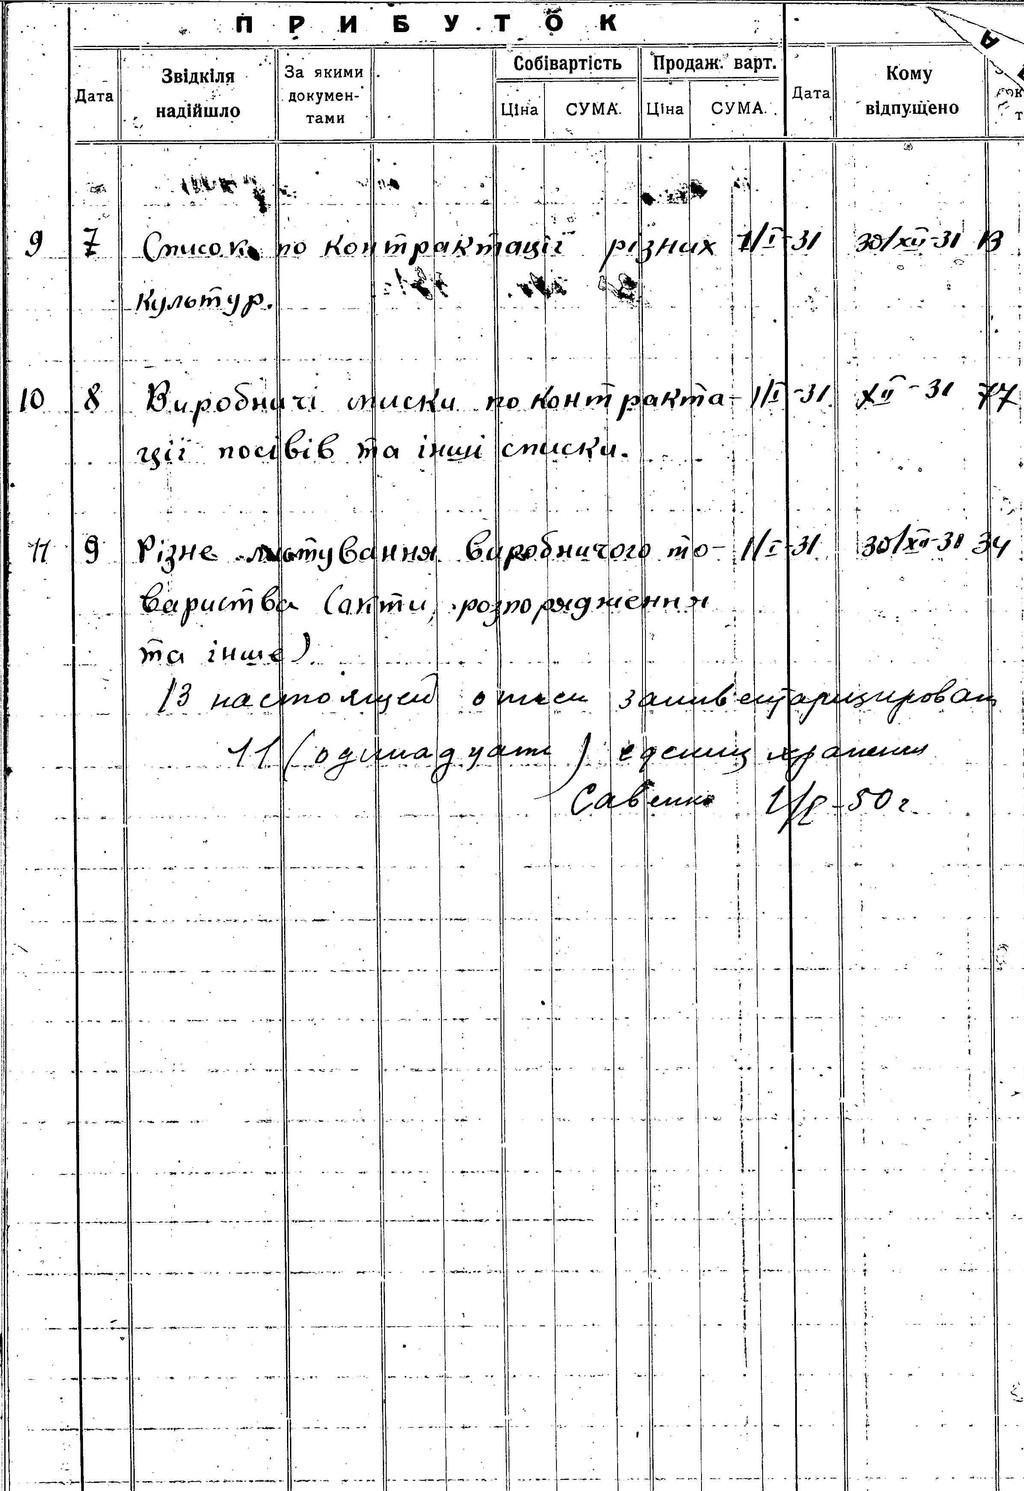 ПРИБУТОК
Дата Звідкіля надійшло За якими докумен- тами Собівартість Ціна СУМА. Продаж. варт. Ціна СУМА. Дата Кому відпущено
9 7 Список по контрактації різних 1/I-31 30/XII-31 13
культур.
10 8 Виробничі списки по контракта- 1/I-31 XII-31 77
ції посівів та інші списки.
11 9 Різне листування виробничого то- 1/I-31 30/XII-31 34
вариства (акти, розпорядження
та інше)
В настоящей описи заинвентаризирован
11 (одинадцать) едениц хранения
Савенко 50 г.